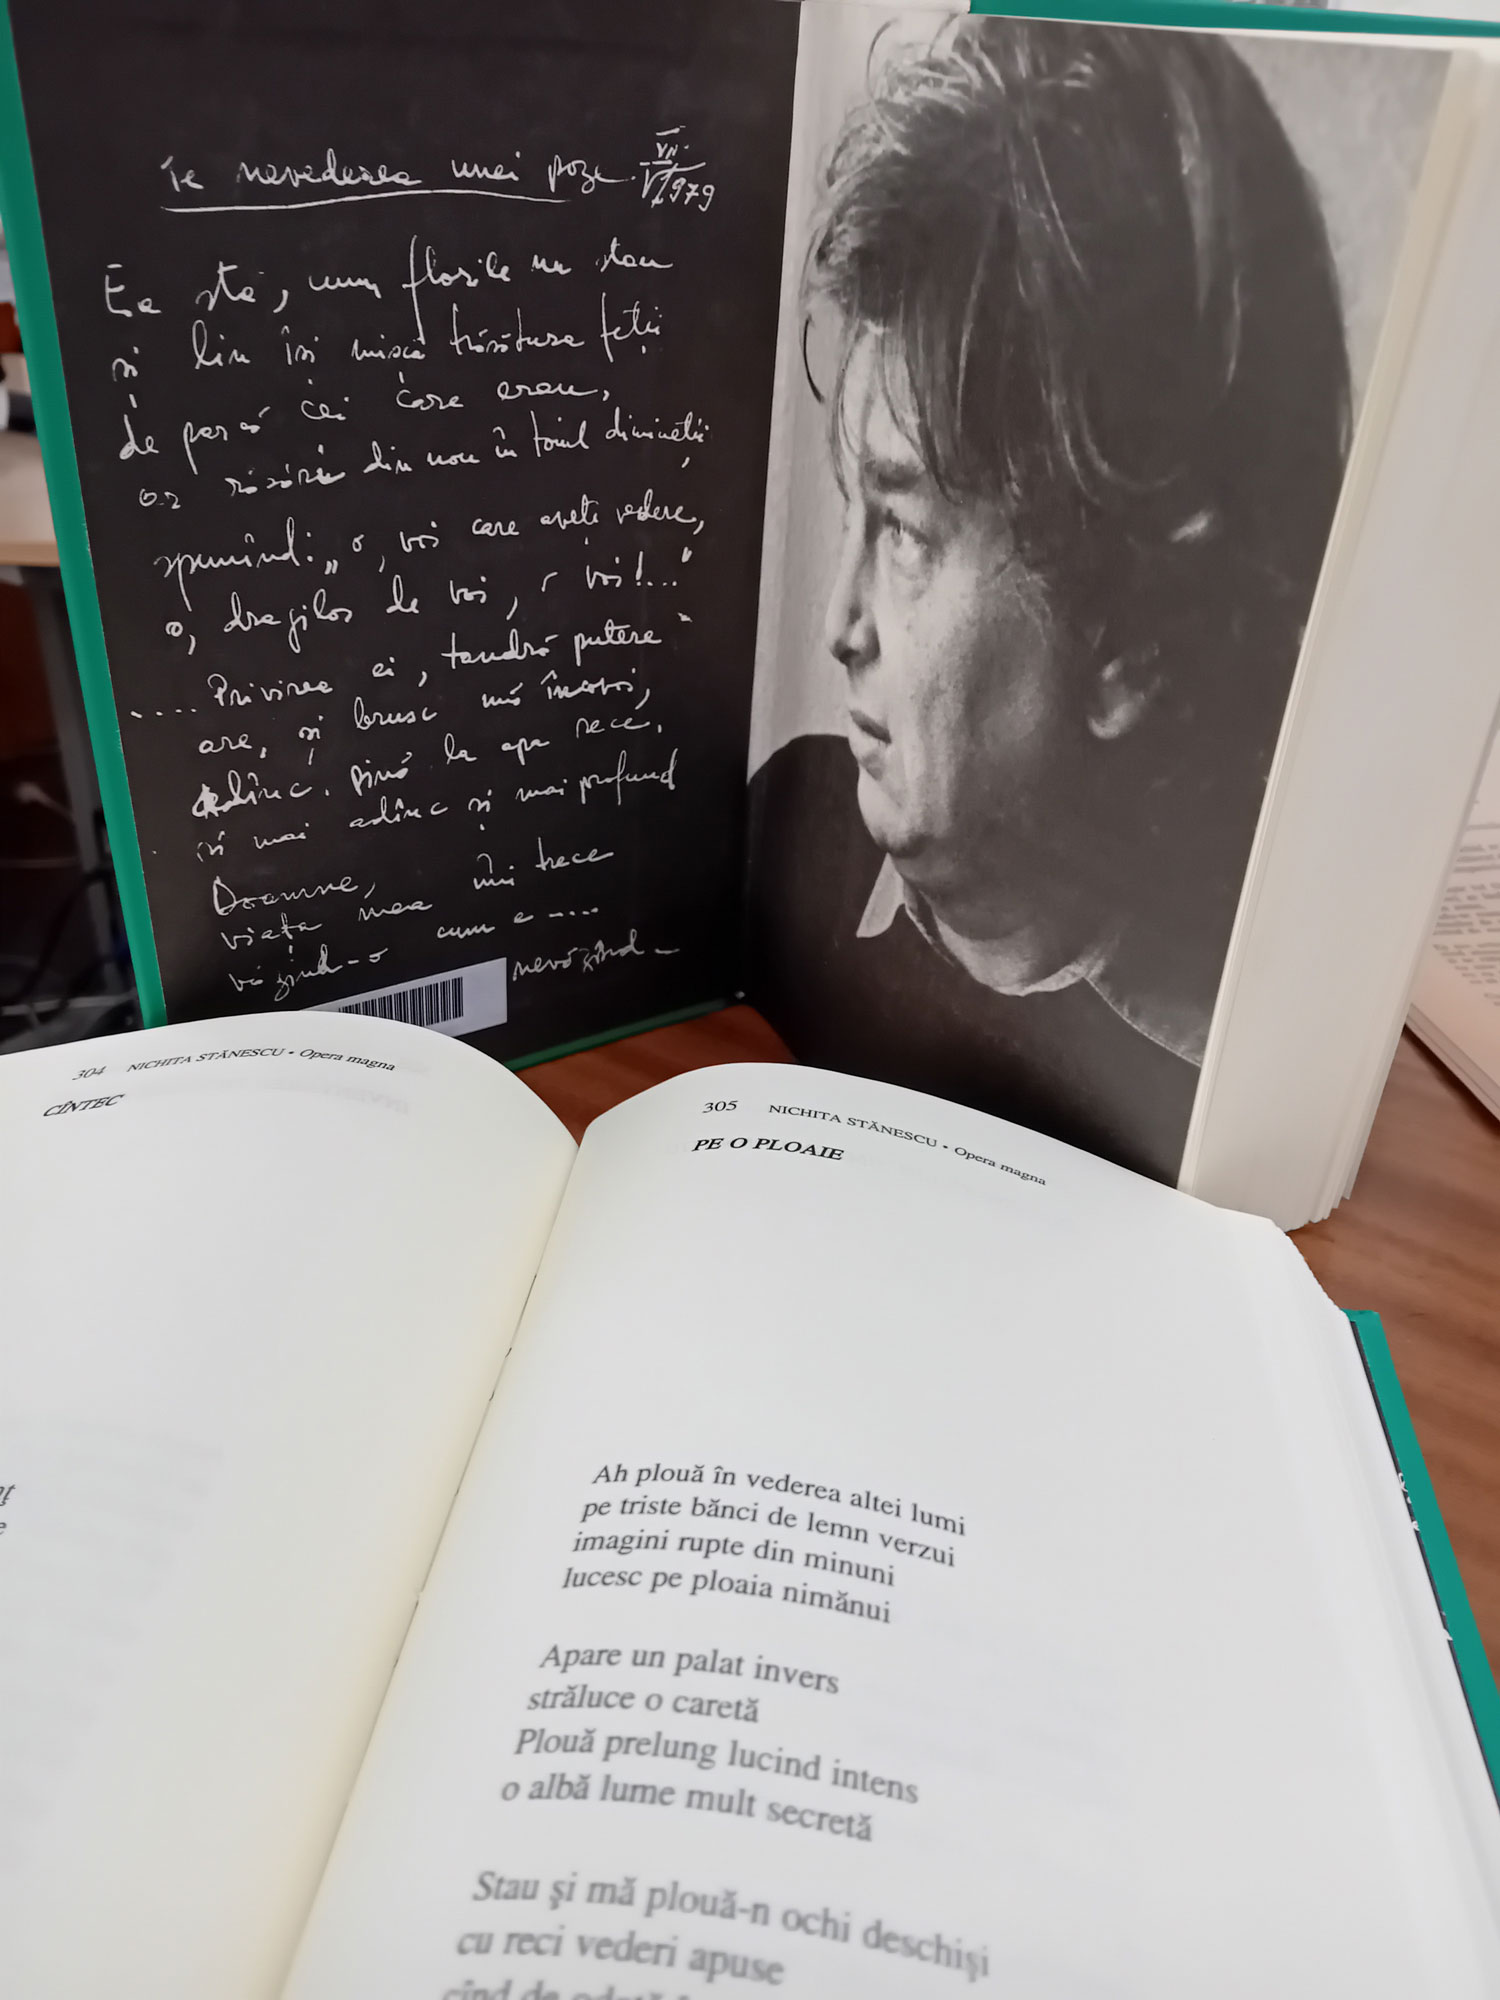 Pe nevederea unei poze. VII 1979
Ea stă, cum florile nu stau
și lin își mișcă trăsătura feții
de parcă cei care erau,
ar răsări din nou în toiul dimineții
spunînd: „o, voi care aveți vedere,
o, dragilor de voi, o voi!..."
.... Privirea ei, tandră putere
are, și brusc mă încovoi,
adînc. Pînă la apa rece.
și mai adînc și mai profund
Doamne,
viața mea îmi trece
văzînd-o cum e ....
nevăzînd –
304 NICHITA STĂNESCU • Opera magna
CÎNTEC
305 NICHITA STĂNESCU • Opera magna
PE O PLOAIE
Ah plouă în vederea altei lumi
pe triste bănci de lemn verzui
imagini rupte din minuni
lucesc pe ploaia nimănui
Apare un palat invers
străluce o caretă
Plouă prelung lucind intens
o albă lume mult secretă
Stau şi mă plouă-n ochi deschişi
cu reci vederi apuse
cînd de odată